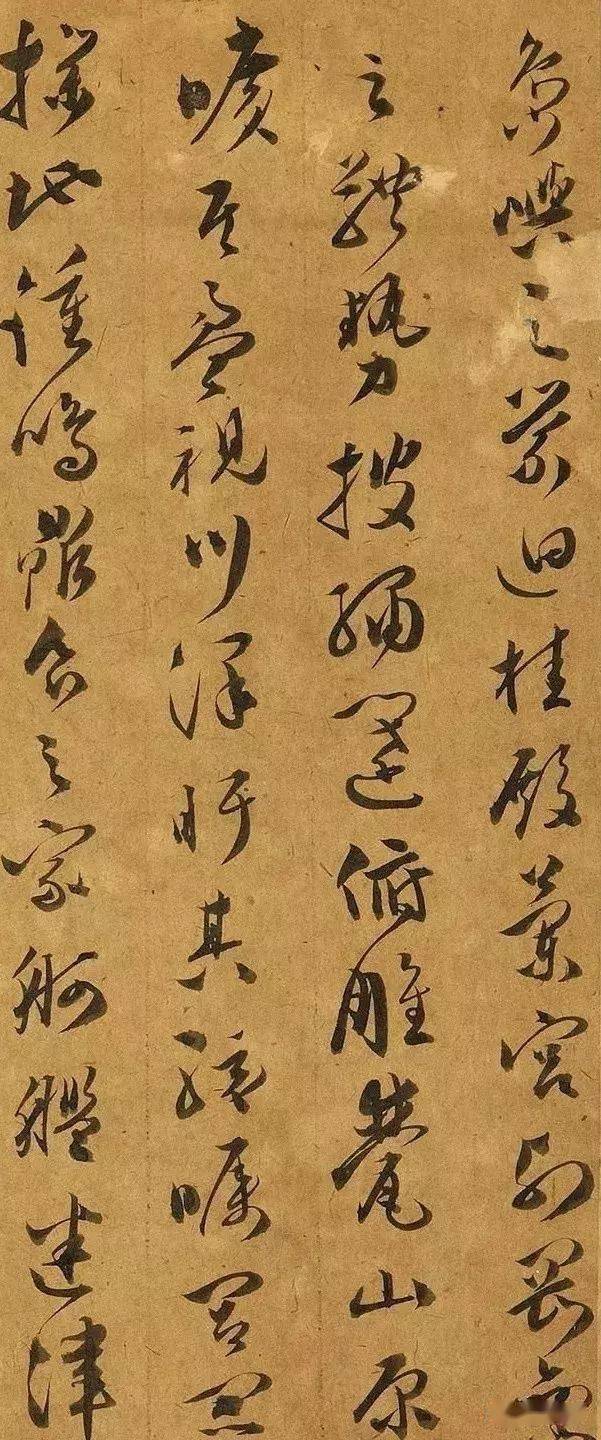 島嶼之縈迴桂殿蘭宮列岡
之體勢披繡闥俯雕甍山原
曠其盈視川澤盱其駭矚閭閻
撲地鐘鳴鼎食之家舸艦迷津